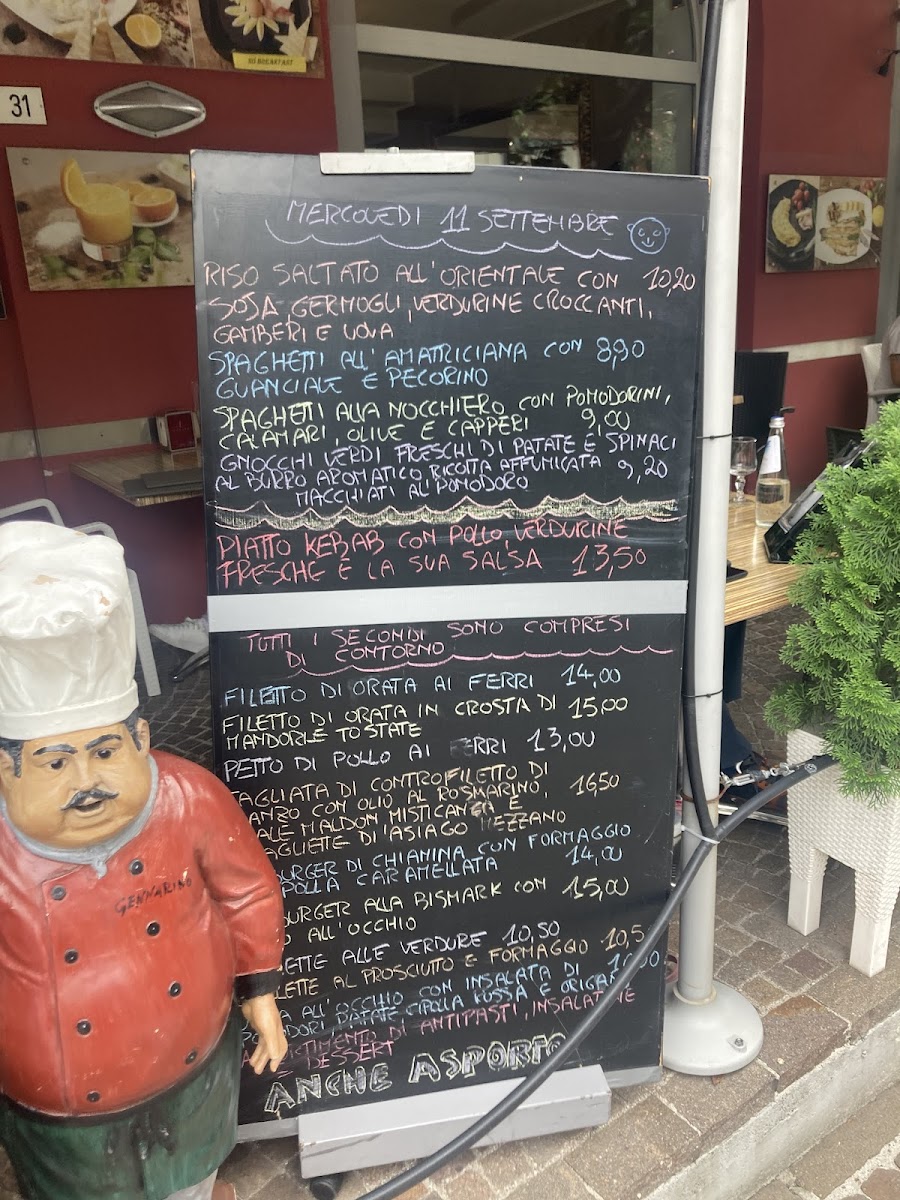 GO BREAKFAST
31
MERCOLEDI 11 SETTEMBRE
RISO SALTATO ALL'ORIENTALE CON 10,20
SOJA GERMOGLI, VERDURINE CROCCANTI,
GAMBERI E UOVA
SPAGHETTI ALL'AMATRICIANA CON 8,90
GUANCIALE E PECORINO
SPAGHETTI ALLA NOCCHIERO CON POMODORINI,
CALAMARI, OLIVE E CAPPERI 9,00
GNOCCHI VERDI FRESCHI DI PATATE E SPINACI
AL BURRO AROMATICO RICOTTA AFFUMICATA 9,20
MACCHIATI AL POMODORO
PIATTO KEBAB CON POLLO VERDURINE
FRESCHE E LA SUA SALSA 13,50
TUTTI I SECONDI SONO COMPRESI
DI CONTORNO
FILETTO DI ORATA AI FERRI 14,00
FILETTO DI ORATA IN CROSTA DI 15,00
MANDORLE TOSTATE
PETTO DI POLLO AI FERRI 13,00
TAGLIATA DI CONTROFILETTO DI
ANZO CON OLIO AL ROSMARINO, 16,50
ALE MALDON MISTICANZA E
AGLIETE D'ASIAGO MEZZANO
BURGER DI CHIANINA CON FORMAGGIO
POLLA CARAMELLATA 14,00
BURGER ALLA BISMARK CON 15,00
O ALL'OCCHIO
ETTE ALLE VERDURE 10,50
LETTE AL PROSCIUTTO E FORMAGGIO 10,5
A ALL'OCCHIO CON INSALATA DI
ODORI, PATATE CIPOLLA ROSSA E ORIGA
TIMENTO DI ANTIPASTI, INSALATINE
E DESSERT
ANCHE ASPORTO
GENNARINO